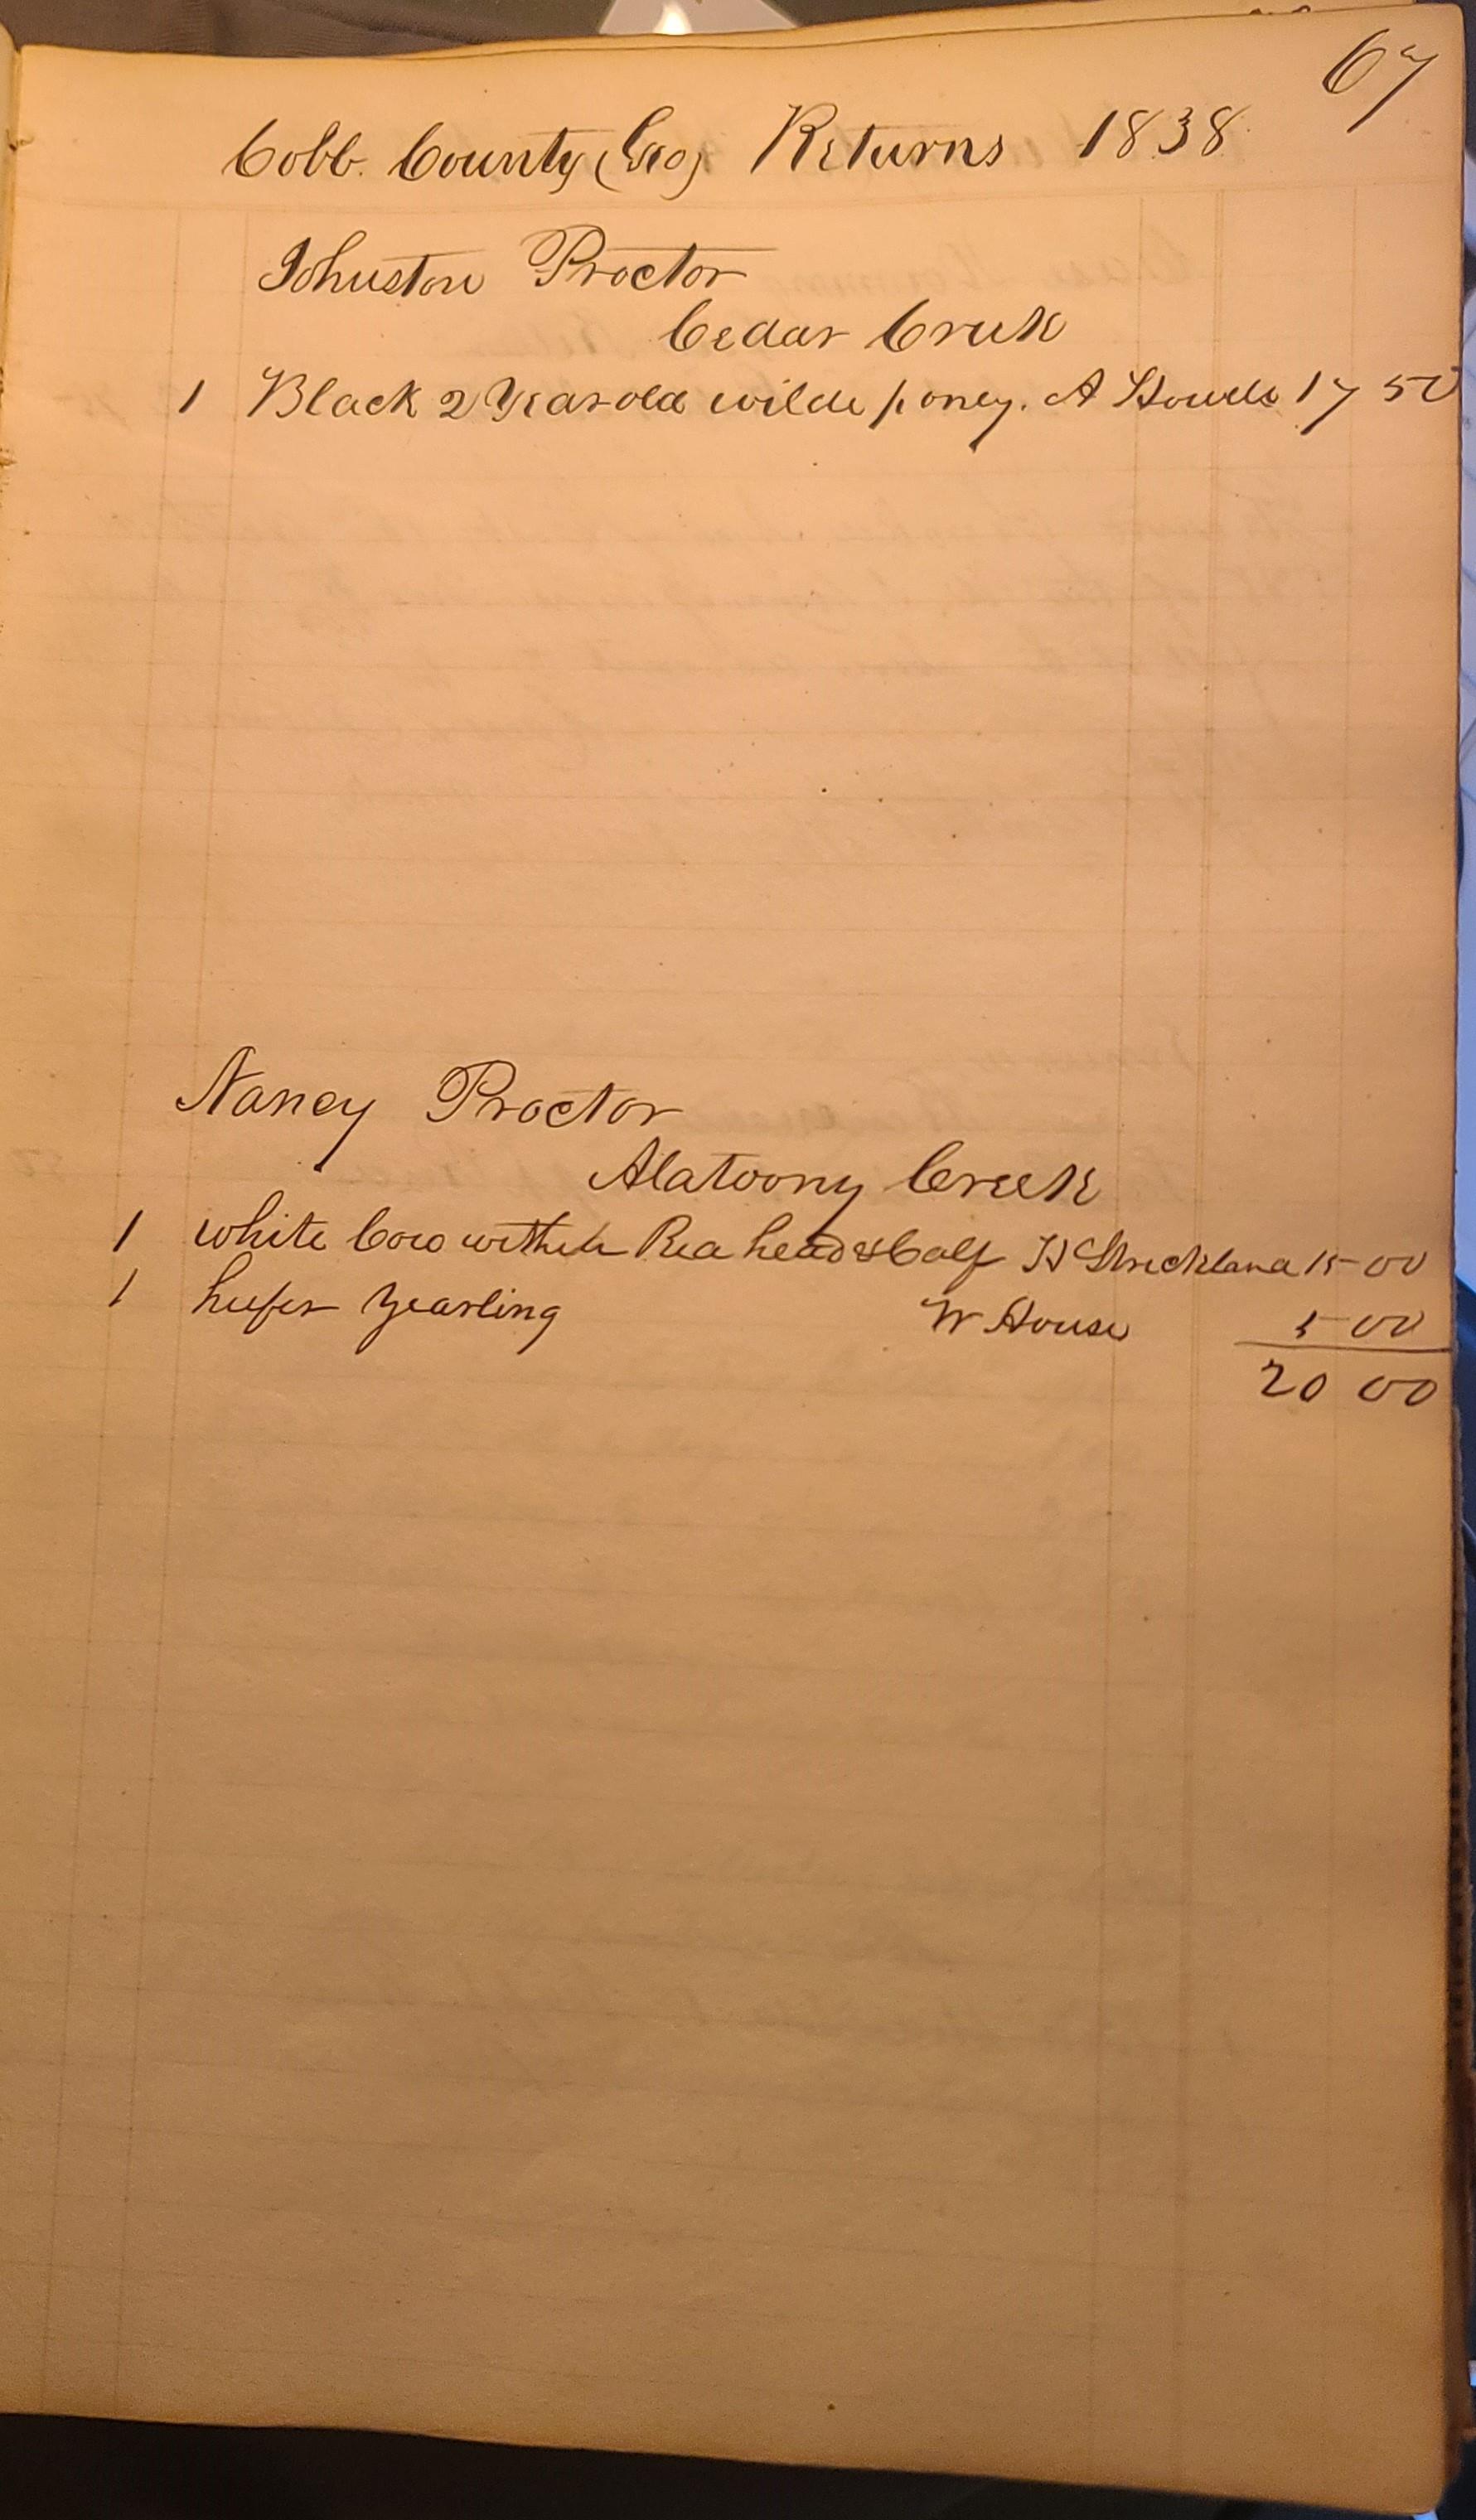 67
Cobb County (Geo) Returns 1838
Johnston Proctor
Cedar Creek
1 Black 2 Year old wilde poney. A Howell 17 50
Nancy Proctor
Alatoony Creek
1 white Cow with Red head & Calf Strickland 15 00
1 heifer Yearling W House 5 00
20 00